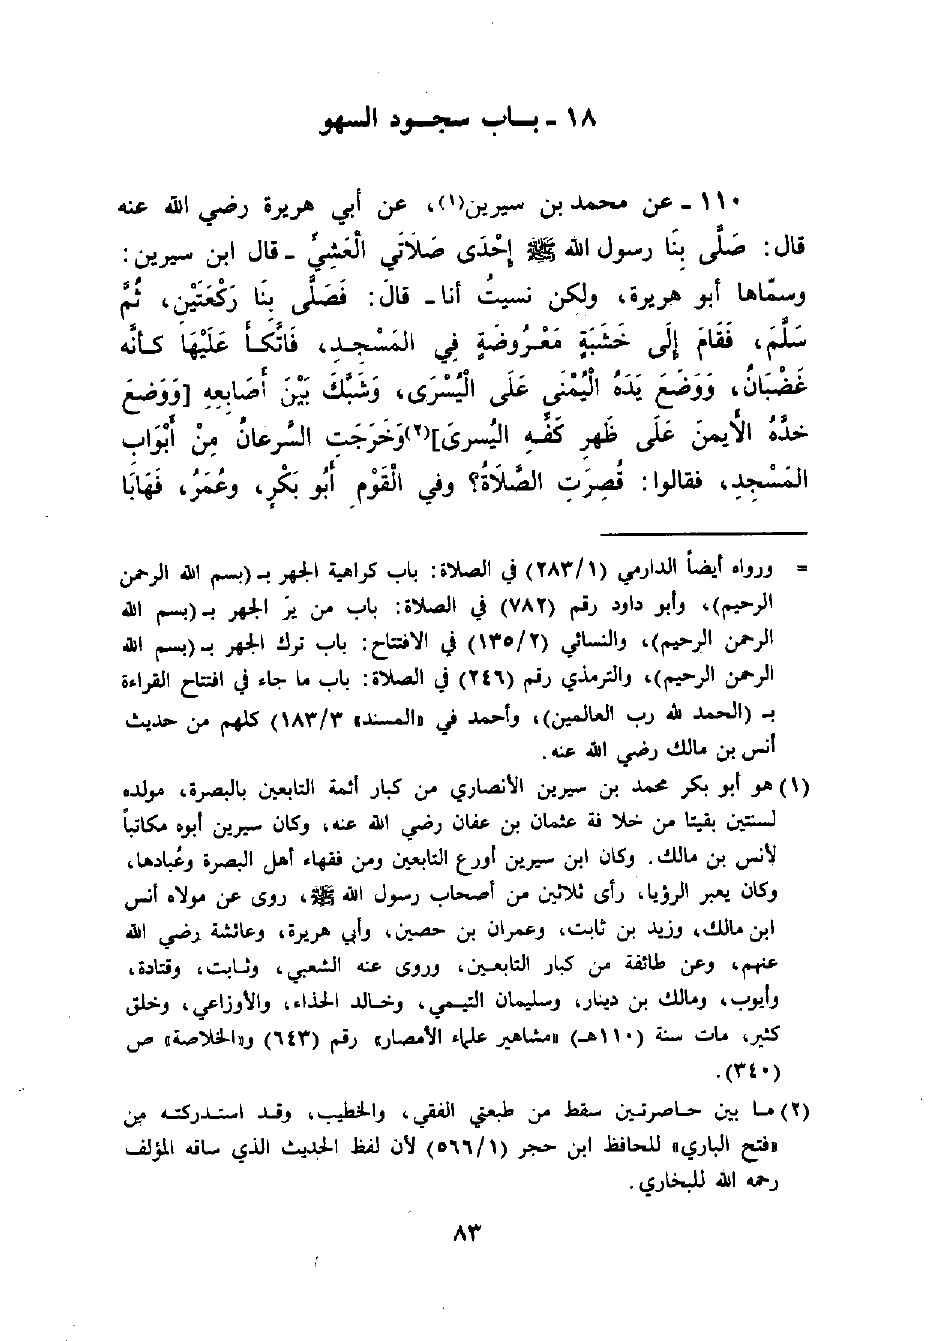 ١٨ - بــاب سجــود السهو
١١٠ - عن محمد بن سيرين(١)، عن أبي هريرة رضي الله عنه
قال: صَلَّى بِنَا رسول الله ﷺ إِحْدَى صَلَاتَي الْعَشِيِّ - قال ابن سيرين:
وسمّاها أبو هريرة، ولكن نسيتُ أنا - قالَ: فَصَلَّى بِنَا رَكْعَتَيْنِ، ثُمَّ
سَلَّمَ، فَقَامَ إِلَى خَشَبَةٍ مَعْرُوضَةٍ فِي المَسْجِدِ، فَاتَّكَأَ عَلَيْهَا كأنَّه
غَضْبَانُ، وَوَضَعَ يَدَهُ الْيُمْنَى عَلَى الْيُسْرَى، وَشَبَّكَ بَيْنَ أَصَابِعِهِ [وَوَضعَ
خدَّهُ الأَيمنَ عَلَى ظَهرِ كَفِّهِ اليُسرىَ](٢)وَخَرَجَتِ السَّرعانُ مِنْ أَبْوَابِ
المَسْجِدِ، فقالوا: قُصِرَتِ الصَّلَاةُ؟ وفي الْقَوْمِ أَبُو بَكْرٍ، وعُمَرُ، فَهَابَا
= ورواه أيضاً الدارمي (٢٨٣/١) في الصلاة: باب كراهية الجهر بـ (بسم الله الرحمن
الرحيم)، وأبو داود رقم (٧٨٢) في الصلاة: باب من يرَ الجهر بـ (بسم الله
الرحمن الرحيم)، والنسائي (١٣٥/٢) في الافتتاح: باب ترك الجهر بـ (بسم الله
الرحمن الرحيم)، والترمذي رقم (٢٤٦) في الصلاة: باب ما جاء في افتتاح القراءة
بـ (الحمد لله رب العالمين)، وأحمد في «المسند» ١٨٣/٣) كلهم من حديث
أنس بن مالك رضي الله عنه.
(١) هو أبو بكر محمد بن سيرين الأنصاري من كبار أئمة التابعين بالبصرة، مولده
لسنتين بقيتا من خلا فة عثمان بن عفان رضي الله عنه، وكان سيرين أبوه مكاتباً
لأنس بن مالك. وكان ابن سيرين أورع التابعين ومن فقهاء أهل البصرة وعُبادها،
وكان يعبر الرؤيا، رأى ثلاثين من أصحاب رسول الله ﷺ، روى عن مولاه أنس
ابن مالك، وزيد بن ثابت، وعمران بن حصين، وأبي هريرة، وعائشة رضي الله
عنهم، وعن طائفة من كبار التابعين، وروى عنه الشعبي، وثابت، وقتادة،
وأيوب، ومالك بن دينار، وسليمان التيمي، وخالد الحذاء، والأوزاعي، وخلق
كثير، مات سنة (١١٠هـ) «مشاهير علماء الأمصار» رقم (٦٤٣) و«الخلاصة» ص
(٣٤٠).
(٢) ما بين حاصرتين سقط من طبعتي الفقي، والخطيب، وقد استدركته مِن
«فتح الباري» للحافظ ابن حجر (٥٦٦/١) لأن لفظ الحديث الذي ساقه المؤلف
رحمه الله للبخاري.
٨٣